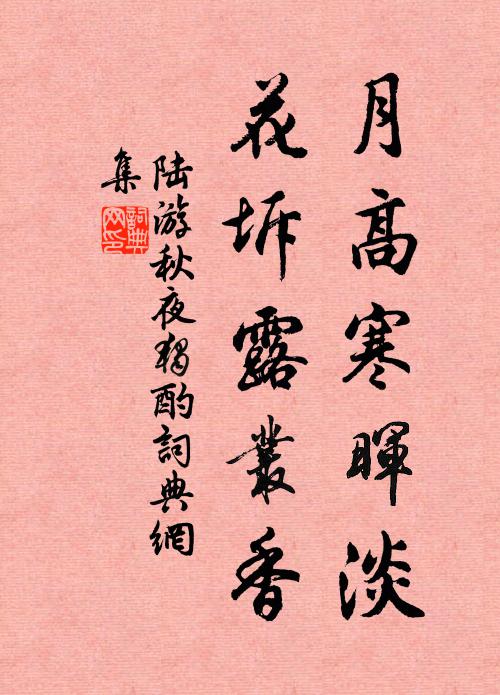 月高寒暉淡
花坼露叢香
陆游秋夜獨酌詞典網
集
詞典网印